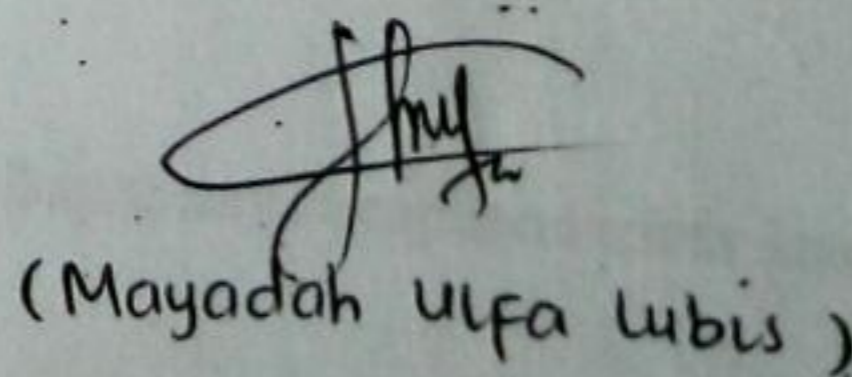 (Mayadah Ulfa Lubis)